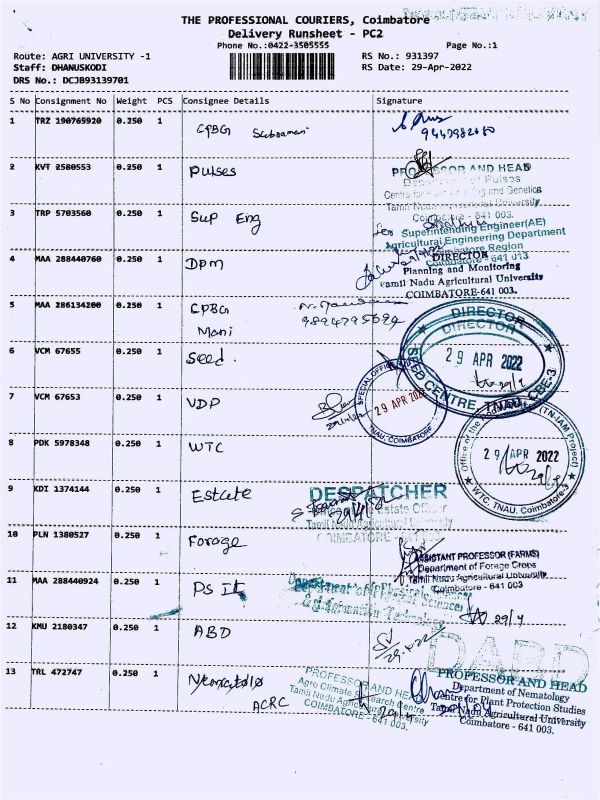 THE PROFESSIONAL COURIERS, Coimbatore
Delivery Runsheet - PC2
Phone No.:0422-3505555
Page No.:1
Route: AGRI UNIVERSITY -1
RS No.: 931397
Staff: DHANUSKODI
RS Date: 29-Apr-2022
DRS No.: DCJB93139701
S No Consignment No Weight PCS Consignee Details Signature
1 TRZ 190765920 0.250 1 CPBG
2 KVT 2580553 0.250 1 Pulses
PROFESSOR AND HEAD
Department of Pulses
Tamil Nadu Agricultural University
Coimbatore - 641 003.
3 TRP 5703560 0.250 1 Sup Eng
Superintending Engineer(AE)
Agricultural Engineering Department
Coimbatore Region
Coimbatore - 641 013
4 MAA 288440760 0.250 1 DPM
DIRECTOR
Planning and Monitoring
Tamil Nadu Agricultural University
COIMBATORE-641 003.
5 MAA 286134200 0.250 1 CPBG
Mani
6 VCM 67655 0.250 1 Seed.
DIRECTOR
DIRECTOR
29 APR 2022
SEED CENTRE, TNAU, CBE-3
7 VCM 67653 0.250 1 VDP
SPECIAL OFFICER
29 APR 2022
TNAU, COIMBATORE
8 PDK 5978348 0.250 1 WTC
Office of the
(TN-IAM Project)
29 APR 2022
WTC, TNAU, Coimbatore-3
9 KDI 1374144 0.250 1 Estate
DESPATCHER
Estate Officer
Tamil Nadu Agricultural University
COIMBATORE
10 PLN 1380527 0.250 1 Forage
ASSISTANT PROFESSOR (FARMS)
Department of Forage Crops
Tamil Nadu Agricultural University
Coimbatore - 641 003
11 MAA 288440924 0.250 1 PS IT
Department of Physical Science
& Information Technology
29/4
12 KMU 2180347 0.250 1 ABD
DARD
13 TRL 472747 0.250 1
ACRC
PROFESSOR AND HEAD
Agro Climate Research Centre
Tamil Nadu Agricultural University
COIMBATORE - 641 003.
PROFESSOR AND HEAD
Department of Nematology
Centre for Plant Protection Studies
Tamil Nadu Agricultural University
Coimbatore - 641 003.